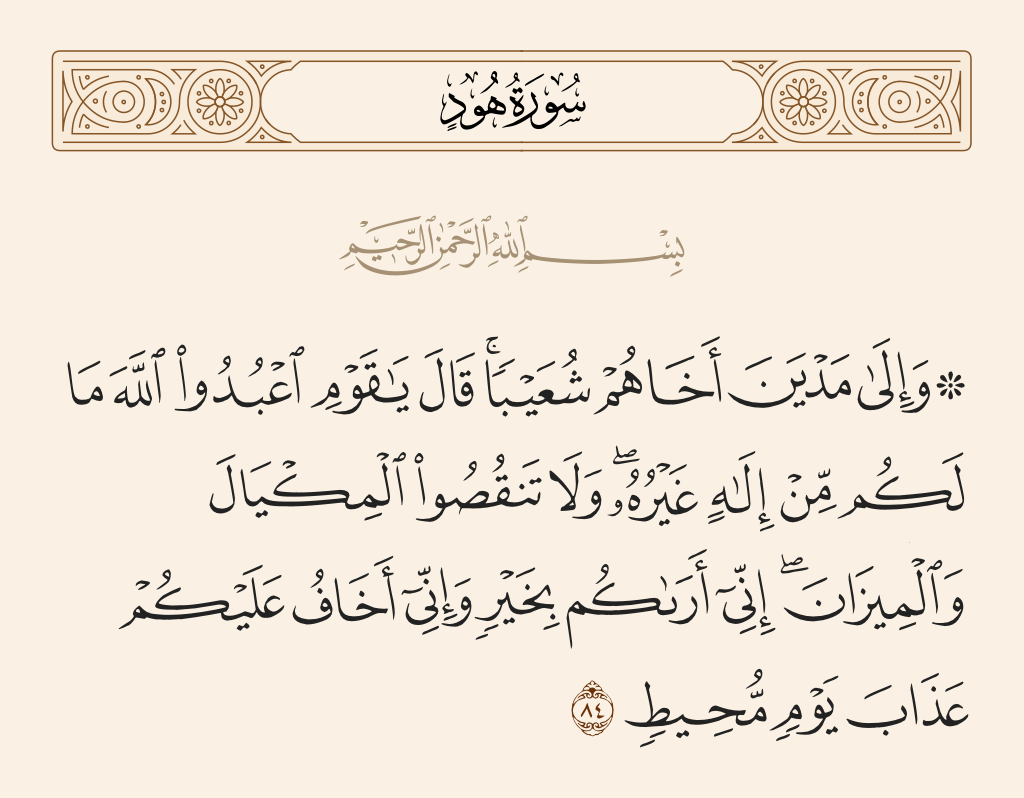 سُورَةُ هُودٍ
بِسْمِ ٱللَّهِ ٱلرَّحْمَٰنِ ٱلرَّحِيمِ
۞ وَإِلَىٰ مَدْيَنَ أَخَاهُمْ شُعَيْبًاۚ قَالَ يَٰقَوْمِ ٱعْبُدُوا۟ ٱللَّهَ مَا
لَكُم مِّنْ إِلَٰهٍ غَيْرُهُۥۖ وَلَا تَنقُصُوا۟ ٱلْمِكْيَالَ
وَٱلْمِيزَانَۖ إِنِّىٓ أَرَىٰكُم بِخَيْرٍ وَإِنِّىٓ أَخَافُ عَلَيْكُمْ
عَذَابَ يَوْمٍ مُّحِيطٍ ٨٤